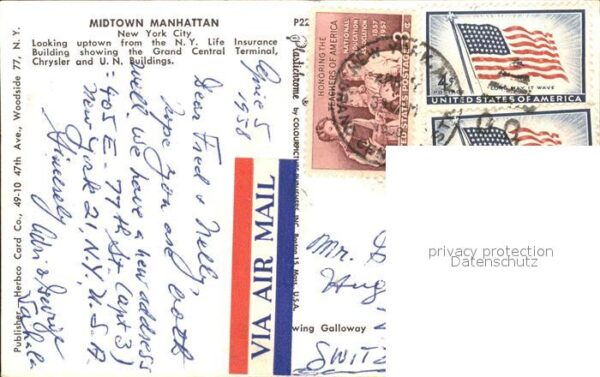 MIDTOWN MANHATTAN
New York City
Looking uptown from the N. Y. Life Insurance
Building showing the Grand Central Terminal,
Chrysler and U. N. Buildings.
P22
Publisher: Herbco Card Co., 49-10 47th Ave., Woodside 77, N. Y.
5
1958
Dear Fred & Nelly,
hope you are both
well. we have a new address
= 405 E - 77th St (apt 3)
New York 21, N.Y., U.S.A
Sincerely
George
VIA AIR MAIL
Plastichrome by COLOURPICTURE PUBLISHERS, INC., Boston 15, Mass., U.S.A.
wing Galloway
HONORING THE
TEACHERS OF AMERICA
NATIONAL
EDUCATION
ASSOCIATION
1857
1957
3¢
UNITED STATES POSTAGE
NEW YORK, N.Y.
4¢
POSTAGE
LONG MAY IT WAVE
UNITED STATES OF AMERICA
Mr.
Hug
SWITZ
privacy protection
Datenschutz